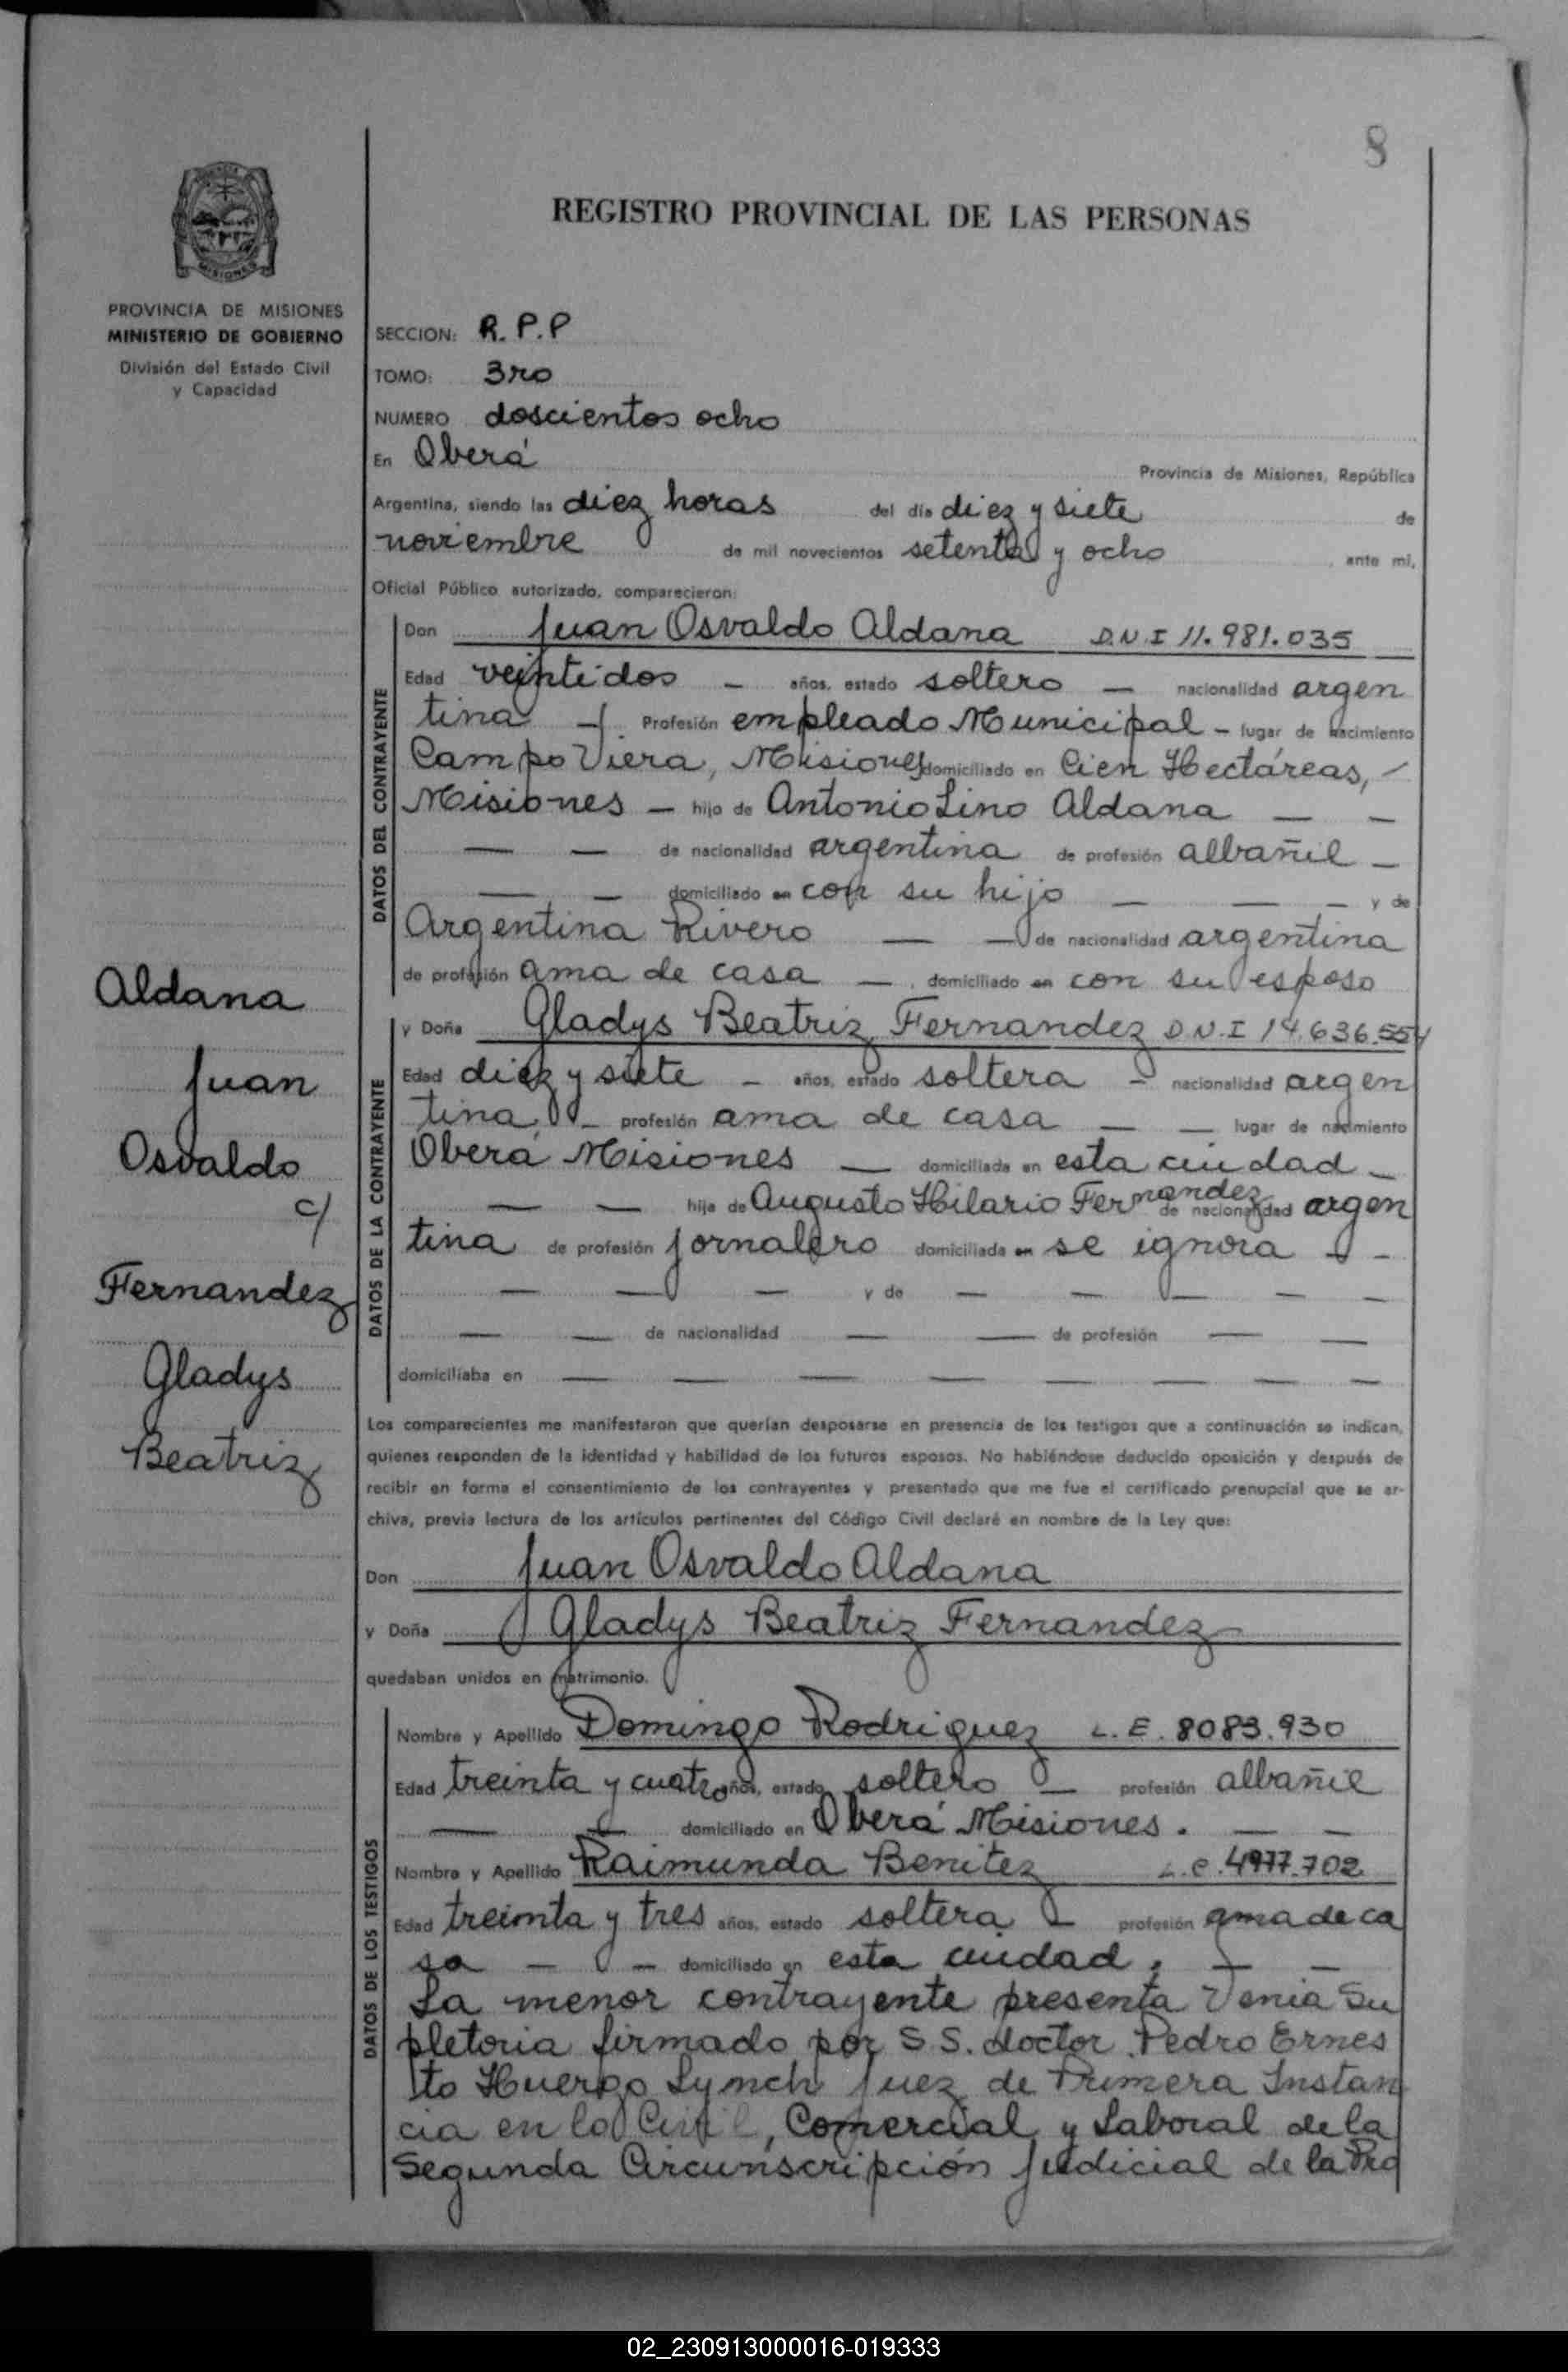 8
REGISTRO PROVINCIAL DE LAS PERSONAS
MISIONES
PROVINCIA DE MISIONES
MINISTERIO DE GOBIERNO
División del Estado Civil
y Capacidad
SECCION: R.P.P
TOMO: 3ro
NUMERO doscientos ocho
En Oberá Provincia de Misiones, República
Argentina, siendo las diez horas del día diez y siete de
noviembre de mil novecientos setenta y ocho, ante mi,
Oficial Público autorizado, comparecieron:
DATOS DEL CONTRAYENTE
Don Juan Osvaldo Aldana D.N.I 11.981.035
Edad veintidos — años, estado soltero — nacionalidad argen
tina — Profesión empleado Municipal — lugar de nacimiento
Campo Viera, Misiones domiciliado en Cien Hectáreas, —
Misiones — hijo de Antonio Lino Aldana — —
— — de nacionalidad argentina de profesión albañil —
— — domiciliado en con su hijo — — — y de
Argentina Rivero — — de nacionalidad argentina
de profesión ama de casa — domiciliado en con su esposo
DATOS DE LA CONTRAYENTE
y Doña Gladys Beatriz Fernandez D.N.I 14.636.554
Edad diez y siete — años, estado soltera — nacionalidad argen
tina — profesión ama de casa — — lugar de nacimiento
Oberá Misiones — domiciliada en esta ciudad —
— — hija de Augusto Hilario Fernandez de nacionalidad argen
tina de profesión jornalero domiciliada en se ignora — —
— — — y de — — — — —
— — de nacionalidad — — de profesión — —
domiciliaba en — — — — — — — —
Aldana
Juan
Osvaldo
c/
Fernandez
Gladys
Beatriz
Los comparecientes me manifestaron que querían desposarse en presencia de los testigos que a continuación se indican,
quienes responden de la identidad y habilidad de los futuros esposos. No habiéndose deducido oposición y después de
recibir en forma el consentimiento de los contrayentes y presentado que me fue el certificado prenupcial que se ar-
chiva, previa lectura de los artículos pertinentes del Código Civil declaré en nombre de la Ley que:
Don Juan Osvaldo Aldana
y Doña Gladys Beatriz Fernandez
quedaban unidos en matrimonio.
DATOS DE LOS TESTIGOS
Nombre y Apellido Domingo Rodriguez L.E. 8083.930
Edad treinta y cuatro años, estado soltero — profesión albañil
— — domiciliado en Oberá Misiones. — —
Nombre y Apellido Raimunda Benitez L.C. 4977.702
Edad treinta y tres años, estado soltera — profesión ama de ca
sa — — domiciliado en esta ciudad. — —
La menor contrayente presenta Venia Su
pletoria firmado por S.S. doctor Pedro Ernes
to Huergo Lynch Juez de Primera Instan
cia en lo Civil, Comercial y Laboral de la
Segunda Circunscripción Judicial de la Pro
02_230913000016-019333